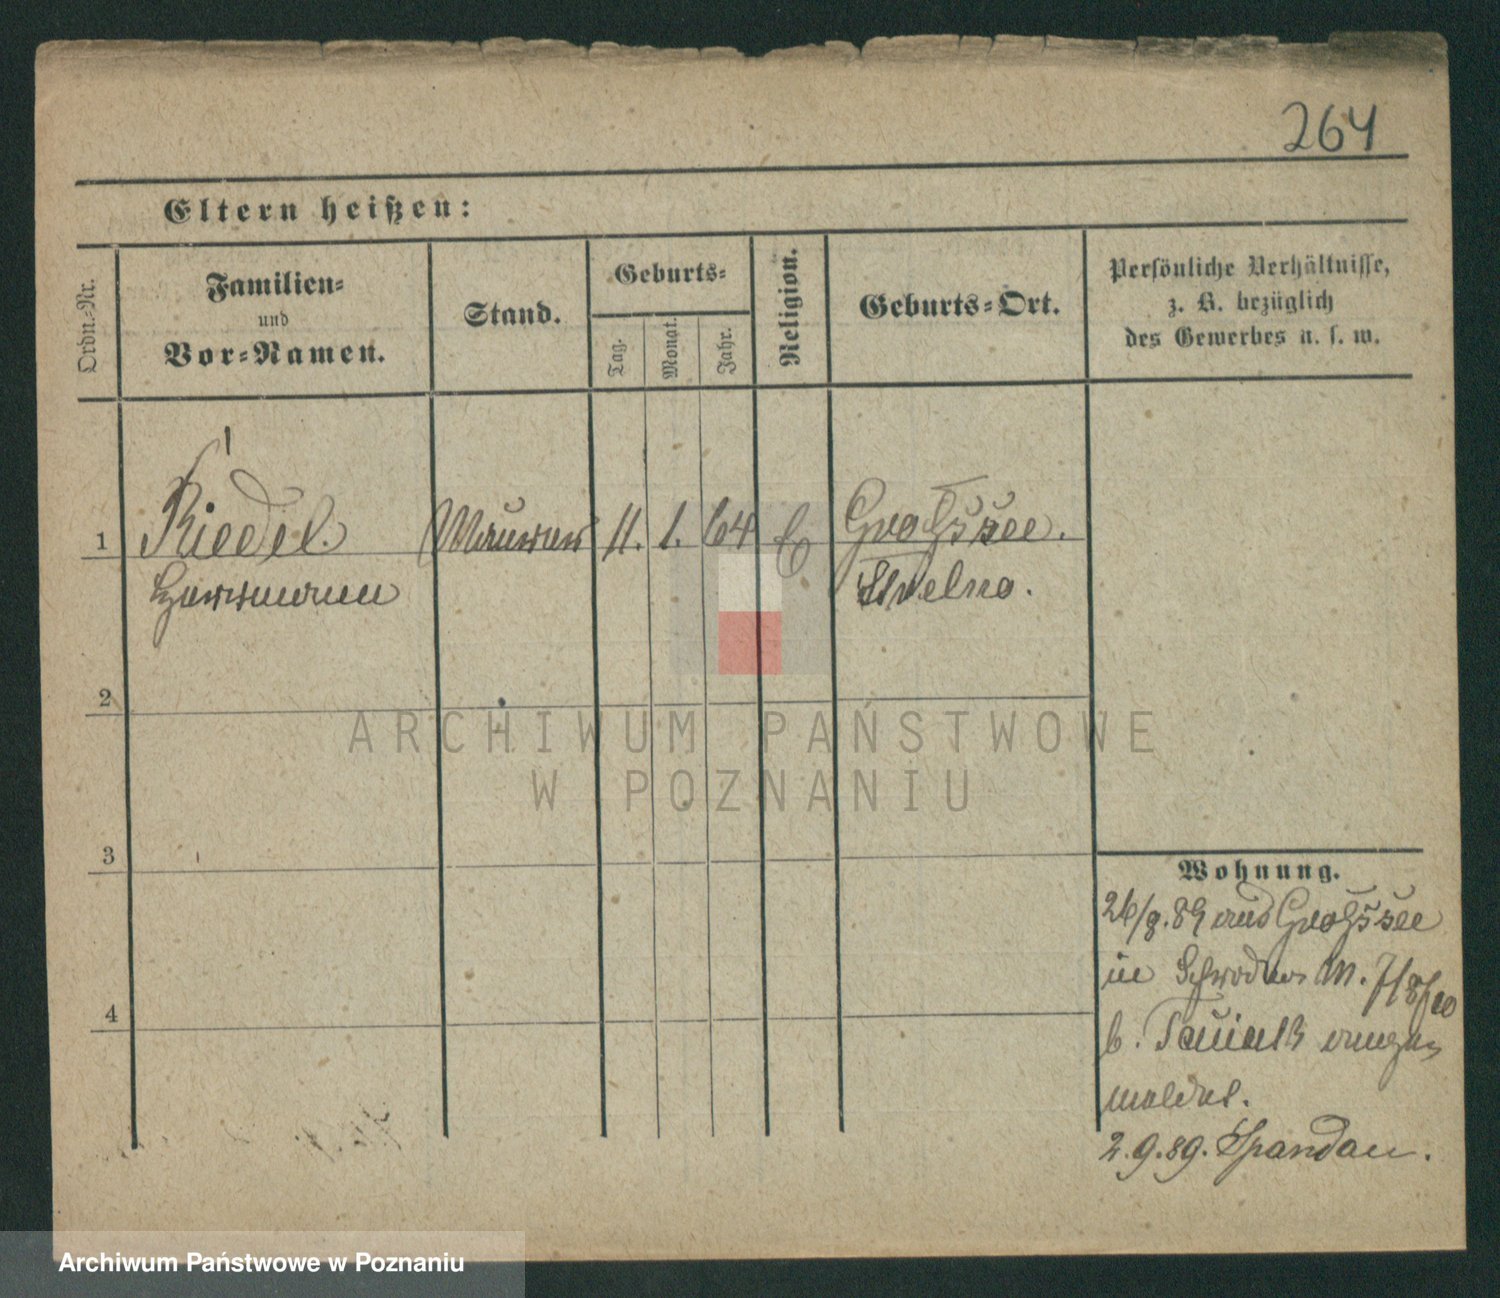 264
Eltern heißen:
Ordn.-Nr.
Familien-
und
Vor-Namen.
Stand.
Geburts-
Tag.
Monat.
Jahr.
Religion.
Geburts-Ort.
Persönliche Verhältnisse,
z. B. bezüglich
des Gewerbes u. s. w.
1 Riedel. Maurer 11. 1. 64 Großsee.
Herrmann
2
3
4
Wohnung.
26/8.89 aus Großsee
in M. 7/8/10
b.
meldet.
2.9.89. Spandau.
ARCHIWUM PAŃSTWOWE
W POZNANIU
Archiwum Państwowe w Poznaniu